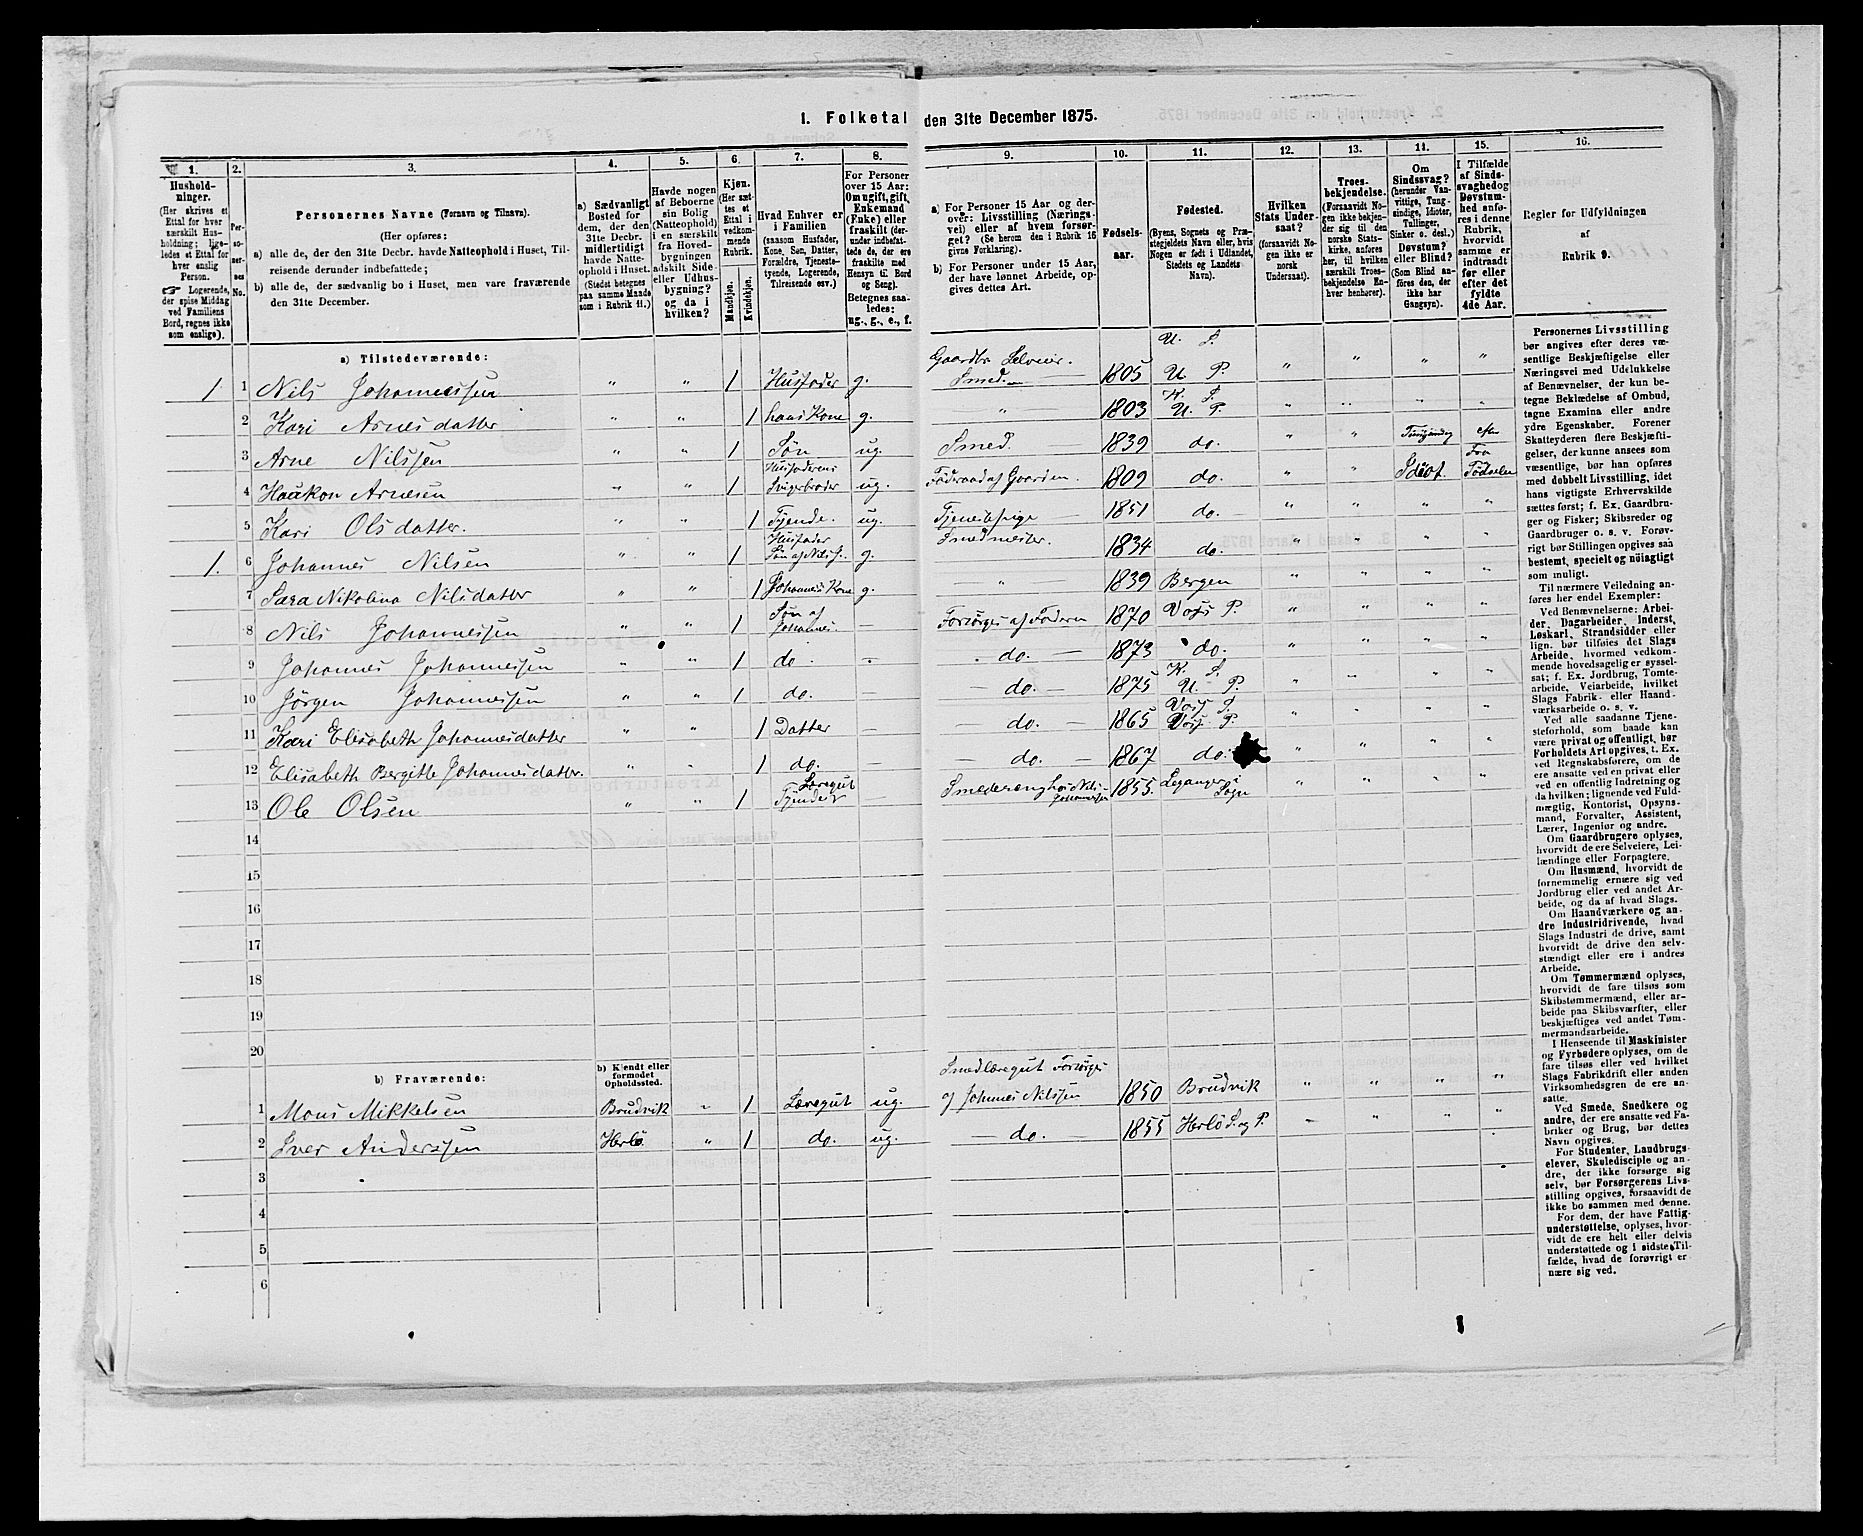 1. Folketal den 31te December 1875.
1. 2. 3. 4. 5. 6. 7. 8. 9. 10. 11. 12. 13. 14. 15. 16.
Hushold-
ninger.
(Her skrives et
Ettal for hver
særskilt Hus-
holdning; lige-
ledes et Ettal for
hver enslig
Person.
☛ Logerende,
der spise Middag
ved Familiens
Bord, regnes ikke
som enslige).
Per-
so-
ner-
nes
No.
Personernes Navne (Fornavn og Tilnavn).
(Her opføres:
a) alle de, der den 31te Decbr. havde Natteophold i Huset, Til-
reisende derunder indbefattede;
b) alle de, der sædvanlig bo i Huset, men vare fraværende
den 31te December.
a) Sædvanligt
Bosted for
dem, der den
31te Decbr.
midlertidigt
havde Natte-
ophold i Huset.
(Stedet betegnes
paa samme Maade
som i Rubrik 11.)
Havde nogen
af Beboerne
sin Bolig
(Natteophold)
i en særskilt
fra Hoved-
bygningen
adskilt Side-
eller Udhus-
bygning?
og da i
hvilken?
Kjøn.
(Her sæt-
tes et
Ettal i
vedkom-
mende
Rubrik.
Mandkjøn.
Kvindekjøn.
Hvad Enhver er
i Familien
(saasom Husfader,
Kone, Søn, Datter,
Forældre, Tjeneste-
tyende, Logerende,
Tilreisende osv.)
For Personer
over 15 Aar:
Om ugift, gift,
Enkemand
(Enke) eller
fraskilt (der-
under indbefat-
tede de, der ere
fraskilte med
Hensyn til Bord
og Seng).
Betegnes saa-
ledes:
ug., g., e., f.
a) For Personer 15 Aar og der-
over: Livsstilling (Nærings-
vei) eller af hvem forsør-
get? (Se herom den i Rubrik 16
givne Forklaring).
b) For Personer under 15 Aar,
der have lønnet Arbeide, op-
gives dettes Art.
Fødsels-
aar.
Fødested.
(Byens, Sognets og Præ-
stegjeldets Navn eller, hvis
Nogen er født i Udlandet,
Stedets og Landets
Navn).
Hvilken
Stats Under-
saat?
(forsaavidt No-
gen ikke er
norsk
Undersaat).
Troes-
bekjendelse.
(Forsaavidt No-
gen ikke bekjen-
der sig til den
norske Stats-
kirke, anføres
her, til hvilken
særskilt Troes-
bekjendelse En-
hver henhører).
Om
Sindssvag?
(herunder Van-
vittige, Tung-
sindige, Idioter,
Tullinger,
Sinker o. desl.)
Døvstum?
eller Blind?
(Som Blind an-
føres den, der
ikke har
Gangsyn).
I Tilfælde
af Sinds-
svaghed og
Døvstum-
hed anfø-
res i denne
Rubrik,
hvorvidt
samme er
indtraadt
før eller
efter det
fyldte
4de Aar.
Regler for Udfyldningen
af
Rubrik 9.
a) Tilstedeværende:
1. 1 Nils Johannessen " " 1 Husfader g. Gaardbr Selveier. Smed. 1805 U. S. U P. " " " "
2 Kari Arnesdatter " " 1 hans Kone g. " 1803 K. S. U. P. " " " "
3 Arne Nilssen " " 1 Søn ug. Smed. 1839 do. " " Tungsindig efter
4 Haakon Arnesen " " 1 Husfaderens Svigerbroder ug. Føderaad af Gaarden. 1809 do. " " Idiot. Fra Fødselen
5 Kari Olsdatter. " " 1 Tjende. ug. Tjenestepige 1851 do. " " " "
1. 6 Johannes Nilsen " " 1 Husfader Søn af Nils J. g. Smedmester. 1834 do. " " " "
7 Sara Nikolina Nilsdatter " " 1 Johannes Kone g. " 1839 Bergen " " " "
8 Nils Johannessen " " 1 Søn af Johannes. — Forsørges af Faderen 1870 Vors P. " " " "
9 Johannes Johannessen " " 1 do. do. — 1873 do. " " " "
10 Jörgen Johannessen " " 1 do. — — do. — 1875 K. S. U. P. " " " "
11 Kari Elisabeth Johannesdatter " " 1 Datter — do. — 1865 Vors S. Vors P. " " " "
12 Elisabeth Bergitte Johannesdatter. " " 1 do. — — do. — 1867 do. " " " "
13 Ole Olsen " " 1 Læregut Tjender — Smededreng hos Nils Johannessen 1855. Leganger i Sogn " " " "
14
15
16
17
18
19
20
b) Fraværende:
b) Kjendt eller
formodet
Opholdssted.
1 Mons Mikkelsen Brudvik " 1 Læregut ug. Smedlæregut Forsørges af Johannes Nilssen 1850 Brudvik " " " "
2 Iver Anderssen Herlö " 1 do. ug. — do. — 1855 Herlö S. og P. " " " "
3
4
5
6
Personernes Livsstilling
bør angives efter deres væ-
sentlige Beskjæftigelse eller
Næringsvei med Udelukkelse
af Benævnelser, der kun be-
tegne Beklædelse af Ombud,
tagne Examina eller andre
ydre Egenskaber. Forener
Skatteyderen flere Beskjæfti-
gelser, der kunne ansees som
væsentlige, bør han opføres
med dobbelt Livsstilling, idet
hans vigtigste Erhvervskilde
sættes først; f. Ex. Gaardbru-
ger og Fisker; Skibsreder og
Gaardbruger o. s. v. Forøv-
rigt bør Stillingen opgives saa
bestemt, specielt og nøiagtigt
som muligt.
Til nærmere Veiledning an-
føres her endel Exempler:
Ved Benævnelserne: Arbei-
der, Dagarbeider, Inderst,
Løskarl, Strandsidder eller
lign. bør tilføies det Slags
Arbeide, hvormed vedkom-
mende hovedsagelig er syssel-
sat; f. Ex. Jordbrug, Tomte-
arbeide, Veiarbeide, hvilket
Slags Fabrik- eller Haand-
værksarbeide o. s. v.
Ved alle saadanne Tjene-
steforhold, som baade kan
være privat og offentligt, bør
Forholdets Art opgives, t. Ex.
ved Regnskabsførere, om de
ere ansatte ved en privat eller
ved en offentlig Indretning og
da hvilken; lignende ved Fuld-
mægtig, Kontorist, Opsyns-
mand, Forvalter, Assistent,
Lærer, Ingeniør og andre.
Om Gaardbrugere oplyses,
hvorvidt de ere Selveiere, Lei-
lændinge eller Forpagtere.
Om Husmænd, hvorvidt de
fornemmelig ernære sig ved
Jordbrug eller ved andet Ar-
beide, og da af hvad Slags.
Om Haandværkere og an-
dre Industridrivende, hvad
Slags Industri de drive, samt
hvorvidt de drive den selv-
stændigt eller ere i andres
Arbeide.
Om Tømmermænd oplyses,
hvorvidt de fare tilsøs som
Skibstømmermænd, eller ar-
beide paa Skibsværfter, eller
beskjæftiges ved andet Tøm-
mermandsarbeide.
I Henseende til Maskinister
og Fyrbødere oplyses, om de
fare tilsøs eller ved hvilket
Slags Fabrikdrift eller anden
Virksomhedsgren de ere an-
satte.
Ved Smede, Snedkere og
andre, der ere ansatte ved Fa-
briker og Brug, bør dettes
Navn opgives.
For Studenter, Landbrugs-
elever, Skoledisciple og an-
dre, der ikke forsørge sig
selv, bør Forsørgerens Livs-
stilling opgives, forsaavidt de
ikke bo sammen med denne.
For dem, der have Fattig-
understøttelse, oplyses, hvor-
vidt de ere helt eller delvis
understøttede og i sidste Til-
fælde, hvad de forøvrigt er-
nære sig ved.